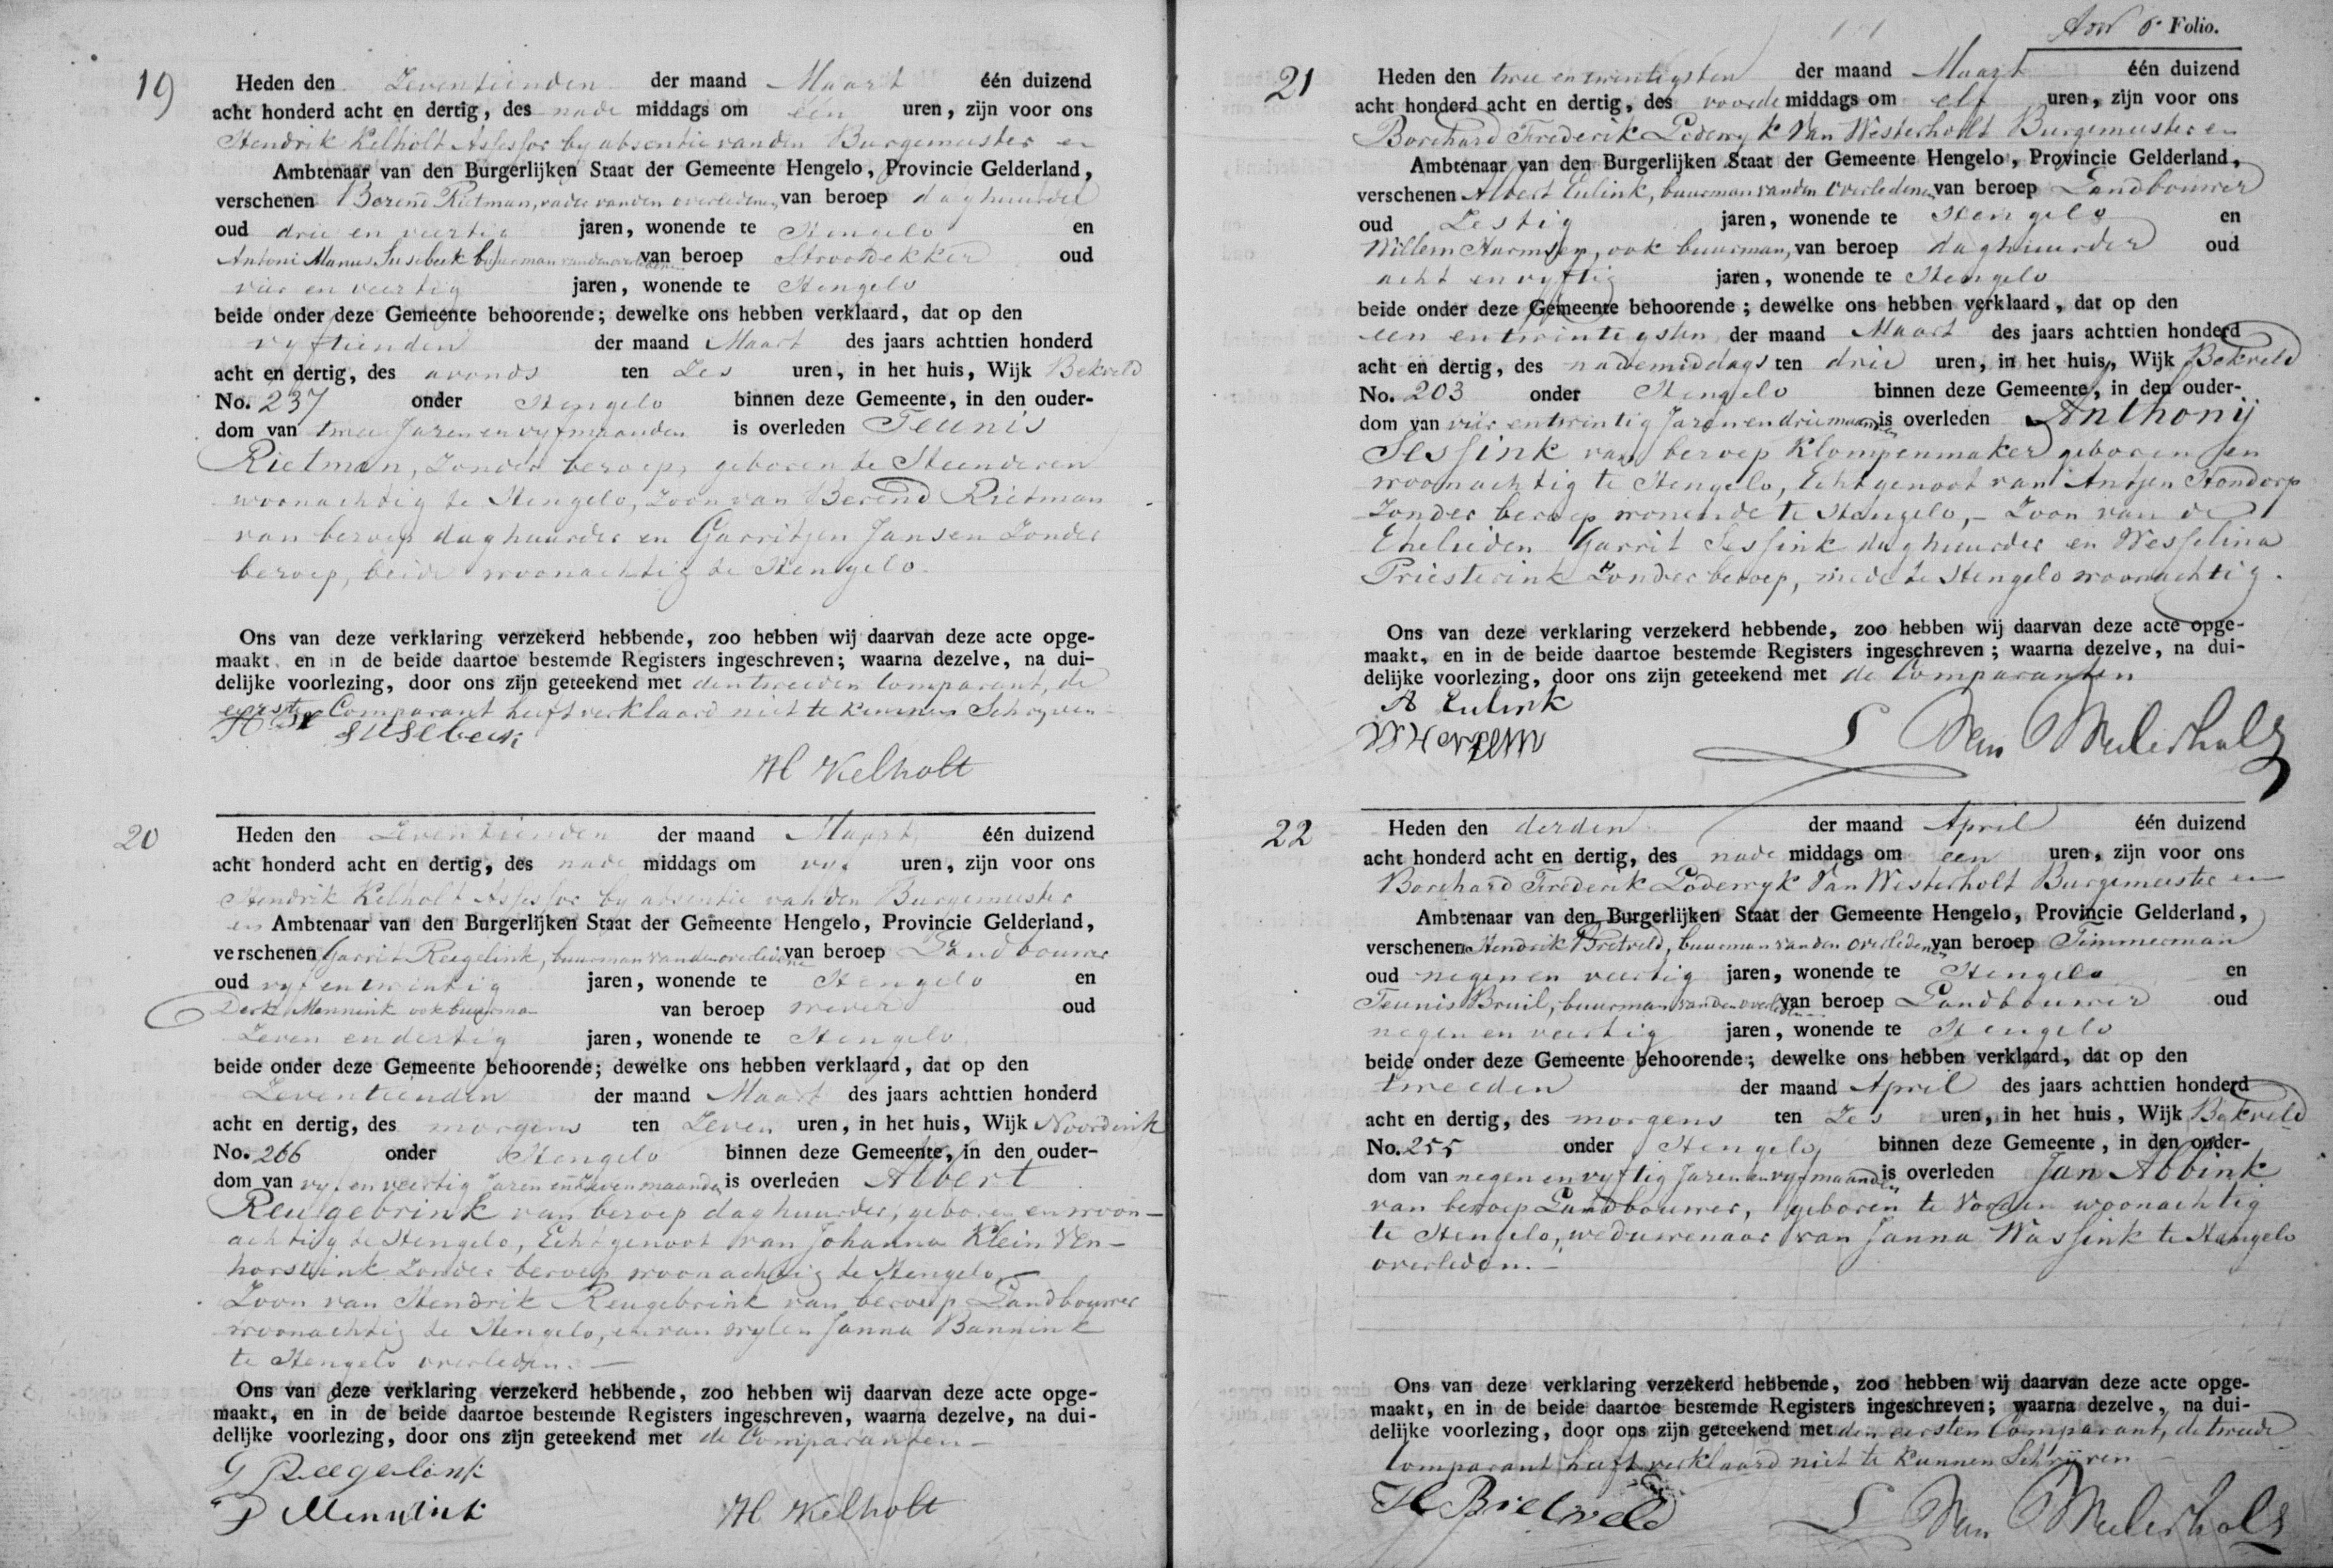 19
Heden den Zeventienden der maand Maart één duizend
acht honderd acht en dertig, des nade middags om één uren, zijn voor ons
Hendrik Kelholt Assessor by absentie van den Burgemeester en
Ambtenaar van den Burgerlijken Staat der Gemeente Hengelo, Provincie Gelderland,
verschenen Berend Rietman, vader van den overledenen, van beroep daghuurder
oud drie en veertig jaren, wonende te Hengelo en
Antoni Manus Susebeek buurman van den overledenen van beroep Stroodekker oud
vier en veertig jaren, wonende te Hengelo
beide onder deze Gemeente behoorende; dewelke ons hebben verklaard, dat op den
vyftienden der maand Maart des jaars achttien honderd
acht en dertig, des avonds ten Zes uren, in het huis, Wijk Bekveld
No. 237 onder Hengelo binnen deze Gemeente, in den ouder-
dom van twee Jaren en vyf maanden is overleden Teunis
Rietman, Zonder beroep, geboren te Steenderen
woonachtig te Hengelo, Zoon van Berend Rietman
van beroep daghuurder en Garritjen Jansen Zonder
beroep, beide woonachtig te Hengelo.
Ons van deze verklaring verzekerd hebbende, zoo hebben wij daarvan deze acte opge-
maakt, en in de beide daartoe bestemde Registers ingeschreven; waarna dezelve, na dui-
delijke voorlezing, door ons zijn geteekend met den tweeden Comparant, de
eerste Comparant heeft verklaard niet te kunnen Schryven
SUSebeek
H Kelholt
20
Heden den Zeventienden der maand Maart één duizend
acht honderd acht en dertig, des nade middags om vyf uren, zijn voor ons
Hendrik Kelholt Assessor by absentie van den Burgemeester
en Ambtenaar van den Burgerlijken Staat der Gemeente Hengelo, Provincie Gelderland,
verschenen Garrit Reegelink, buurman van den overledene van beroep Landbouwer
oud vyf en twintig jaren, wonende te Hengelo en
Derk Mennink ook buurman van beroep wever oud
Zeven en dertig jaren, wonende te Hengelo
beide onder deze Gemeente behoorende; dewelke ons hebben verklaard, dat op den
Zeventienden der maand Maart des jaars achttien honderd
acht en dertig, des morgens ten Zeven uren, in het huis, Wijk Noordink
No. 266 onder Hengelo binnen deze Gemeente, in den ouder-
dom van vyf en veertig Jaren en Zeven maanden is overleden Albert
Reugebrink van beroep daghuurder, geboren en woon-
achtig te Hengelo, Echtgenoot van Johanna Klein Ven-
horstink Zonder beroep woonachtig te Hengelo,
Zoon van Hendrik Reugebrink van beroep Landbouwer
woonachtig te Hengelo, en van wylen Janna Bannink
te Hengelo overleden. —
Ons van deze verklaring verzekerd hebbende, zoo hebben wij daarvan deze acte opge-
maakt, en in de beide daartoe bestemde Registers ingeschreven, waarna dezelve, na dui-
delijke voorlezing, door ons zijn geteekend met de Comparanten —
G Reegelink
D Mennink
H Kelholt
6e Folio.
21
Heden den twee en twintigsten der maand Maart één duizend
acht honderd acht en dertig, des voorde middags om elf uren, zijn voor ons
Borchard Frederik Lodewyk Van Westerholt Burgemeester en
Ambtenaar van den Burgerlijken Staat der Gemeente Hengelo, Provincie Gelderland,
verschenen Albert Eulink, buurman van den overledenen van beroep Landbouwer
oud Zestig jaren, wonende te Hengelo en
Willem Harmsen, ook buurman, van beroep daghuurder oud
acht en vyftig jaren, wonende te Hengelo
beide onder deze Gemeente behoorende; dewelke ons hebben verklaard, dat op den
een en twintigsten der maand Maart des jaars achttien honderd
acht en dertig, des nademiddags ten drie uren, in het huis, Wijk Bekveld
No. 203 onder Hengelo binnen deze Gemeente, in den ouder-
dom van vier en twintig Jaren en drie maanden is overleden Anthonij
Sessink van beroep Klompenmaker geboren en
woonachtig te Hengelo, Echtgenoot van Antjen Hondorp
Zonder beroep wonende te Hengelo, – Zoon van de
Ehelieden Garrit Sessink daghuurder en Wesselina
Priesterink Zonder beroep, mede te Hengelo woonachtig.
Ons van deze verklaring verzekerd hebbende, zoo hebben wij daarvan deze acte opge-
maakt, en in de beide daartoe bestemde Registers ingeschreven; waarna dezelve, na dui-
delijke voorlezing, door ons zijn geteekend met de Comparanten
A Eulink
L Van Westerholt
22
Heden den derden der maand April één duizend
acht honderd acht en dertig, des nade middags om een uren, zijn voor ons
Borchard Frederik Lodewyk Van Westerholt Burgemeester en
Ambtenaar van den Burgerlijken Staat der Gemeente Hengelo, Provincie Gelderland,
verschenen Hendrik Bretveld, buurman van den overledenen van beroep Timmerman
oud negen en veertig jaren, wonende te Hengelo en
Teunis Bruil, buurman van den overledenen van beroep Landbouwer oud
negen en veertig jaren, wonende te Hengelo
beide onder deze Gemeente behoorende; dewelke ons hebben verklaard, dat op den
tweeden der maand April des jaars achttien honderd
acht en dertig, des morgens ten Zes uren, in het huis, Wijk Bekveld
No. 255 onder Hengelo binnen deze Gemeente, in den ouder-
dom van negen en vyftig Jaren en vyf maanden is overleden Jan Abbink
van beroep Landbouwer, geboren te Vorden woonachtig
te Hengelo, weduwenaar van Janna Wassink te Hengelo
overleden. –
Ons van deze verklaring verzekerd hebbende, zoo hebben wij daarvan deze acte opge-
maakt, en in de beide daartoe bestemde Registers ingeschreven; waarna dezelve, na dui-
delijke voorlezing, door ons zijn geteekend met den eersten Comparant, de tweede
Comparant heeft verklaard niet te kunnen Schrijven —
H Bretveld
L Van Westerholt